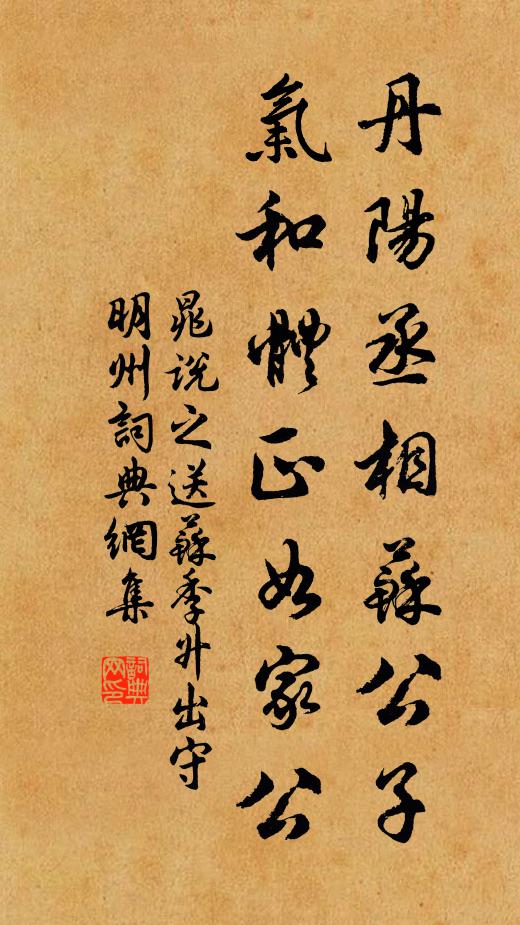 丹陽丞相蘇公子
氣和體正如家公
晁說之送蘇季升出守
明州詞典網集
詞典
网印